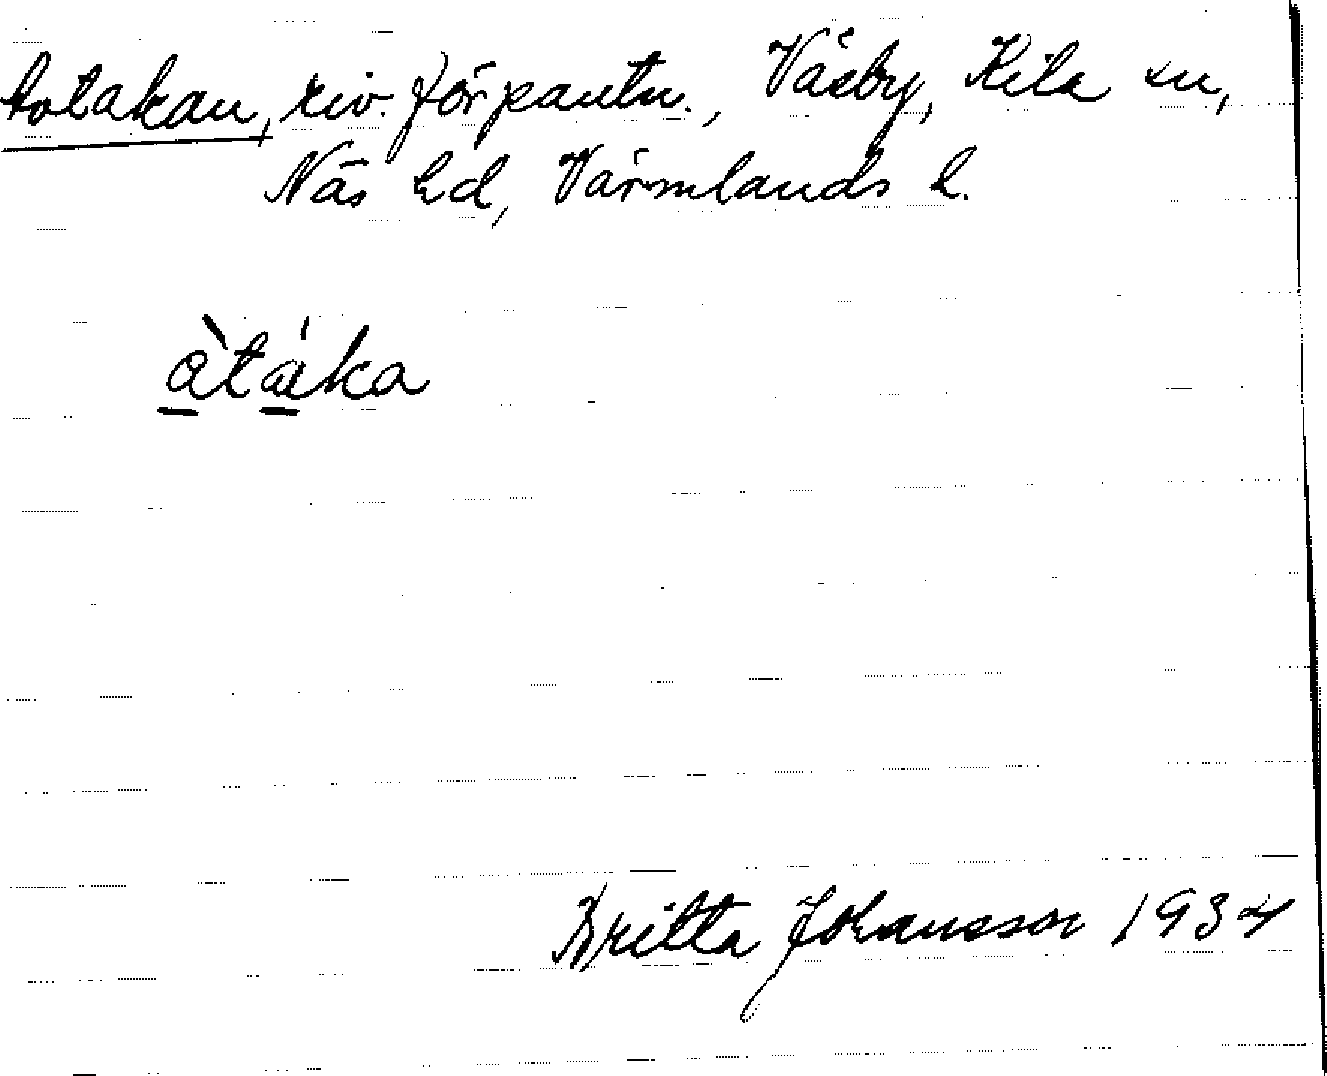 Åtakan, riv. för pantn., Väsby, Kila sn,
Näs hd, Värmlands l.
àtáka
Britta Johansson 1934